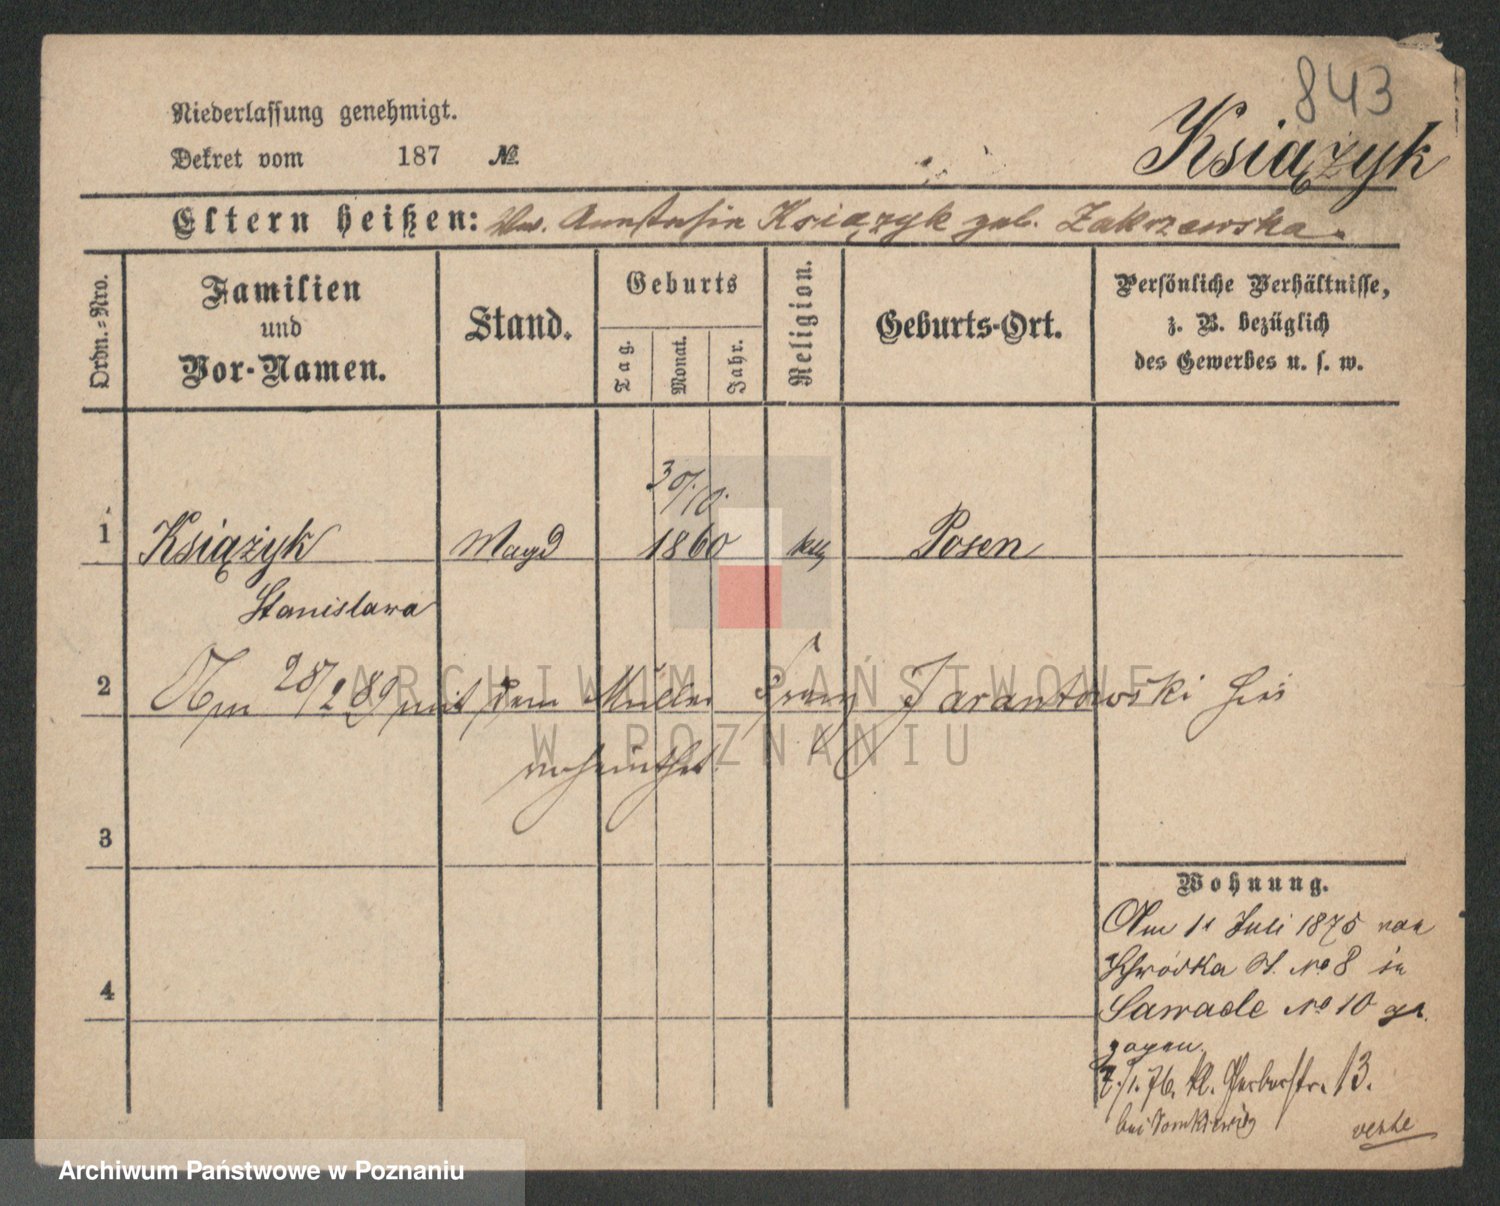 843
Niederlassung genehmigt.
Dekret vom 187 №
Książyk
Eltern heißen: Ww. Anastasia Książyk geb. Zakrzewska.
Ordn.-Nro.
Familien
und
Vor-Namen.
Stand.
Geburts
Tag.
Monat.
Jahr.
Religion.
Geburts-Ort.
Persönliche Verhältnisse,
z. B. bezüglich
des Gewerbes u. s. w.
30/10.
1 Książyk Magd 1860 kth Posen
Stanislawa
2 Am 28/2 89 mit dem Müller Franz Jarantowski hier
verheirathet.
3
4
Wohnung.
Am 11 Juli 1875 von
Schrodka St. No 8 in
Sawade No 10 ge
zogen.
7./1.76. kl. Gerberstr. 13.
bei Tomkiewicz
verte
ARCHIWUM PAŃSTWOWE
W POZNANIU
Archiwum Państwowe w Poznaniu